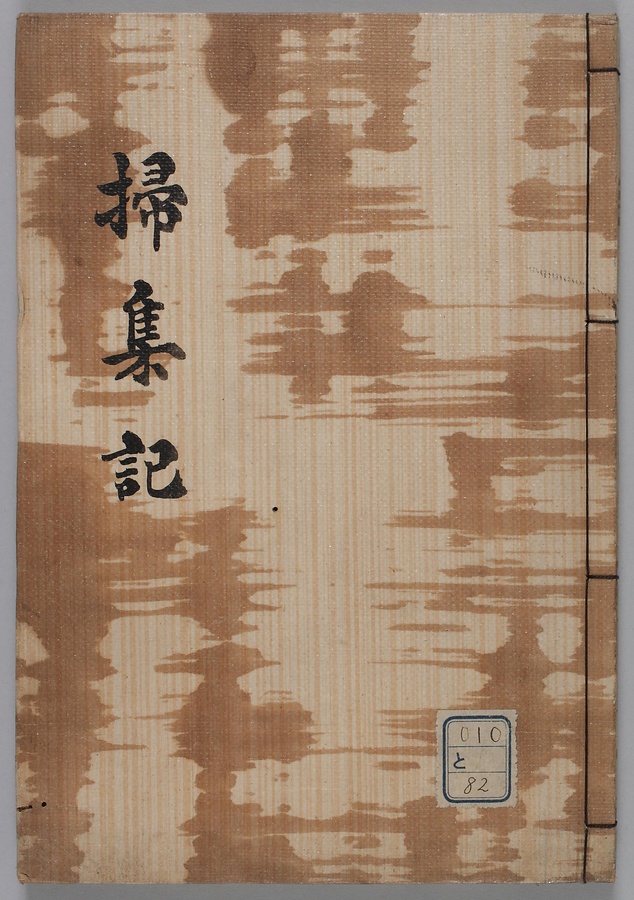 掃集記
010
と
82